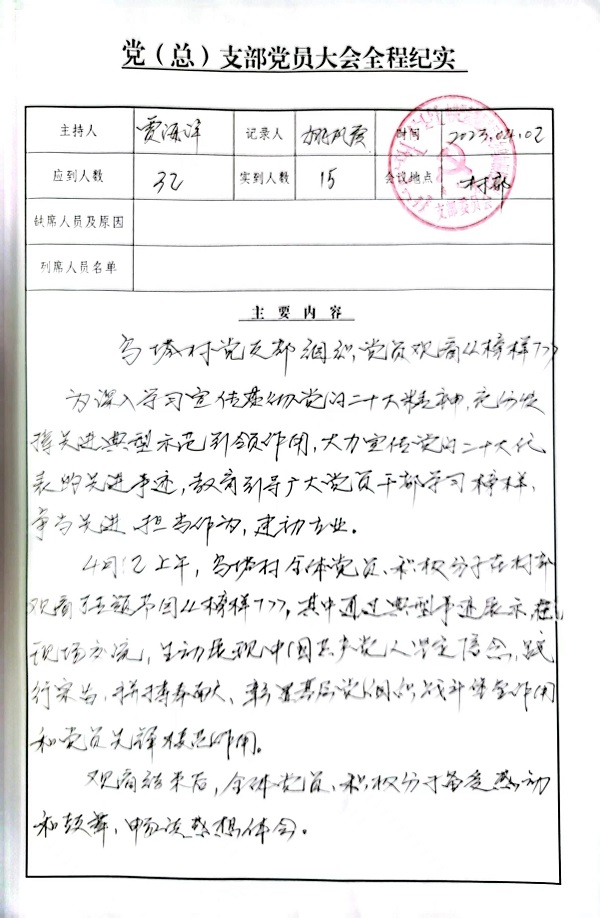 党（总）支部党员大会全程纪实
主持人 贾海洋 记录人 时间 2023.04.02
应到人数 32 实到人数 15 会议地点 村部
支部委员会
缺席人员及原因
列席人员名单
主要内容
乌塔村党支部组织党员观看《榜样7》
为深入学习宣传贯彻党的二十大精神，充分发
挥先进典型示范引领作用，大力宣传党的二十大代
表的先进事迹，教育引导广大党员干部学习榜样、
争当先进、担当作为，建功立业。
4月2上午，乌塔村全体党员、积极分子在村部
观看专题节目《榜样7》，其中通过典型事迹展示，
现场交流，生动展现中国共产党人坚定信念，践
行宗旨、拼搏奉献、彰显基层党组织战斗堡垒作用
和党员先锋模范作用。
观看结束后，全体党员、积极分子备受感动
和鼓舞，畅谈感想体会。